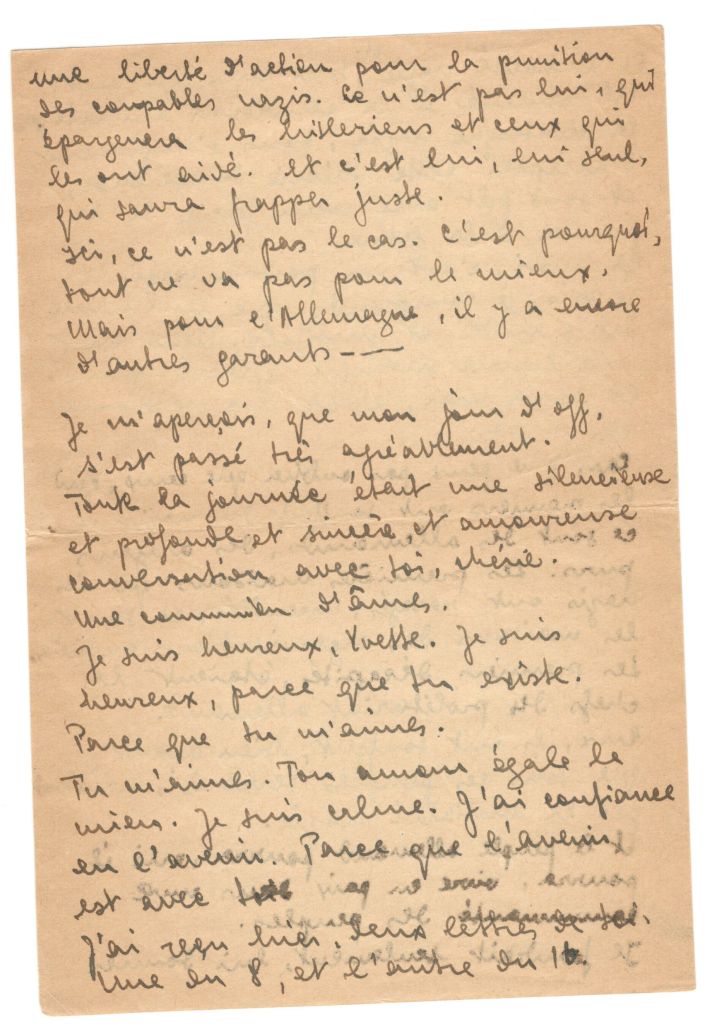 une liberté d'action pour la punition
des coupables nazis. Ce n'est pas lui, qui
épargenera les hitleriens et ceux qui
les ont aidé. et c'est lui, lui seul,
qui saura frapper juste.
Ici, ce n'est pas le cas. C'est pourquoi,
tout ne va pas pour le mieux.
Mais pour l'Allemagne, il y a encore
d'autres garants — —
Je m'aperçois, que mon jour d'off.
s'est passé très agréablement.
Toute la journée était une silencieuse
et profonde et sincère, et amoureuse
conversation avec toi, chérie.
Une communion d'âmes.
Je suis heureux, Yvette. Je suis
heureux, parce que tu existe.
Parce que tu m'aimes.
Tu m'aimes. Ton amour égale le
mien. Je suis calme. J'ai confiance
en l'avenir. Parce que l'avenir
est avec
J'ai reçu hier, deux lettres de toi.
Une du 8, et l'autre du